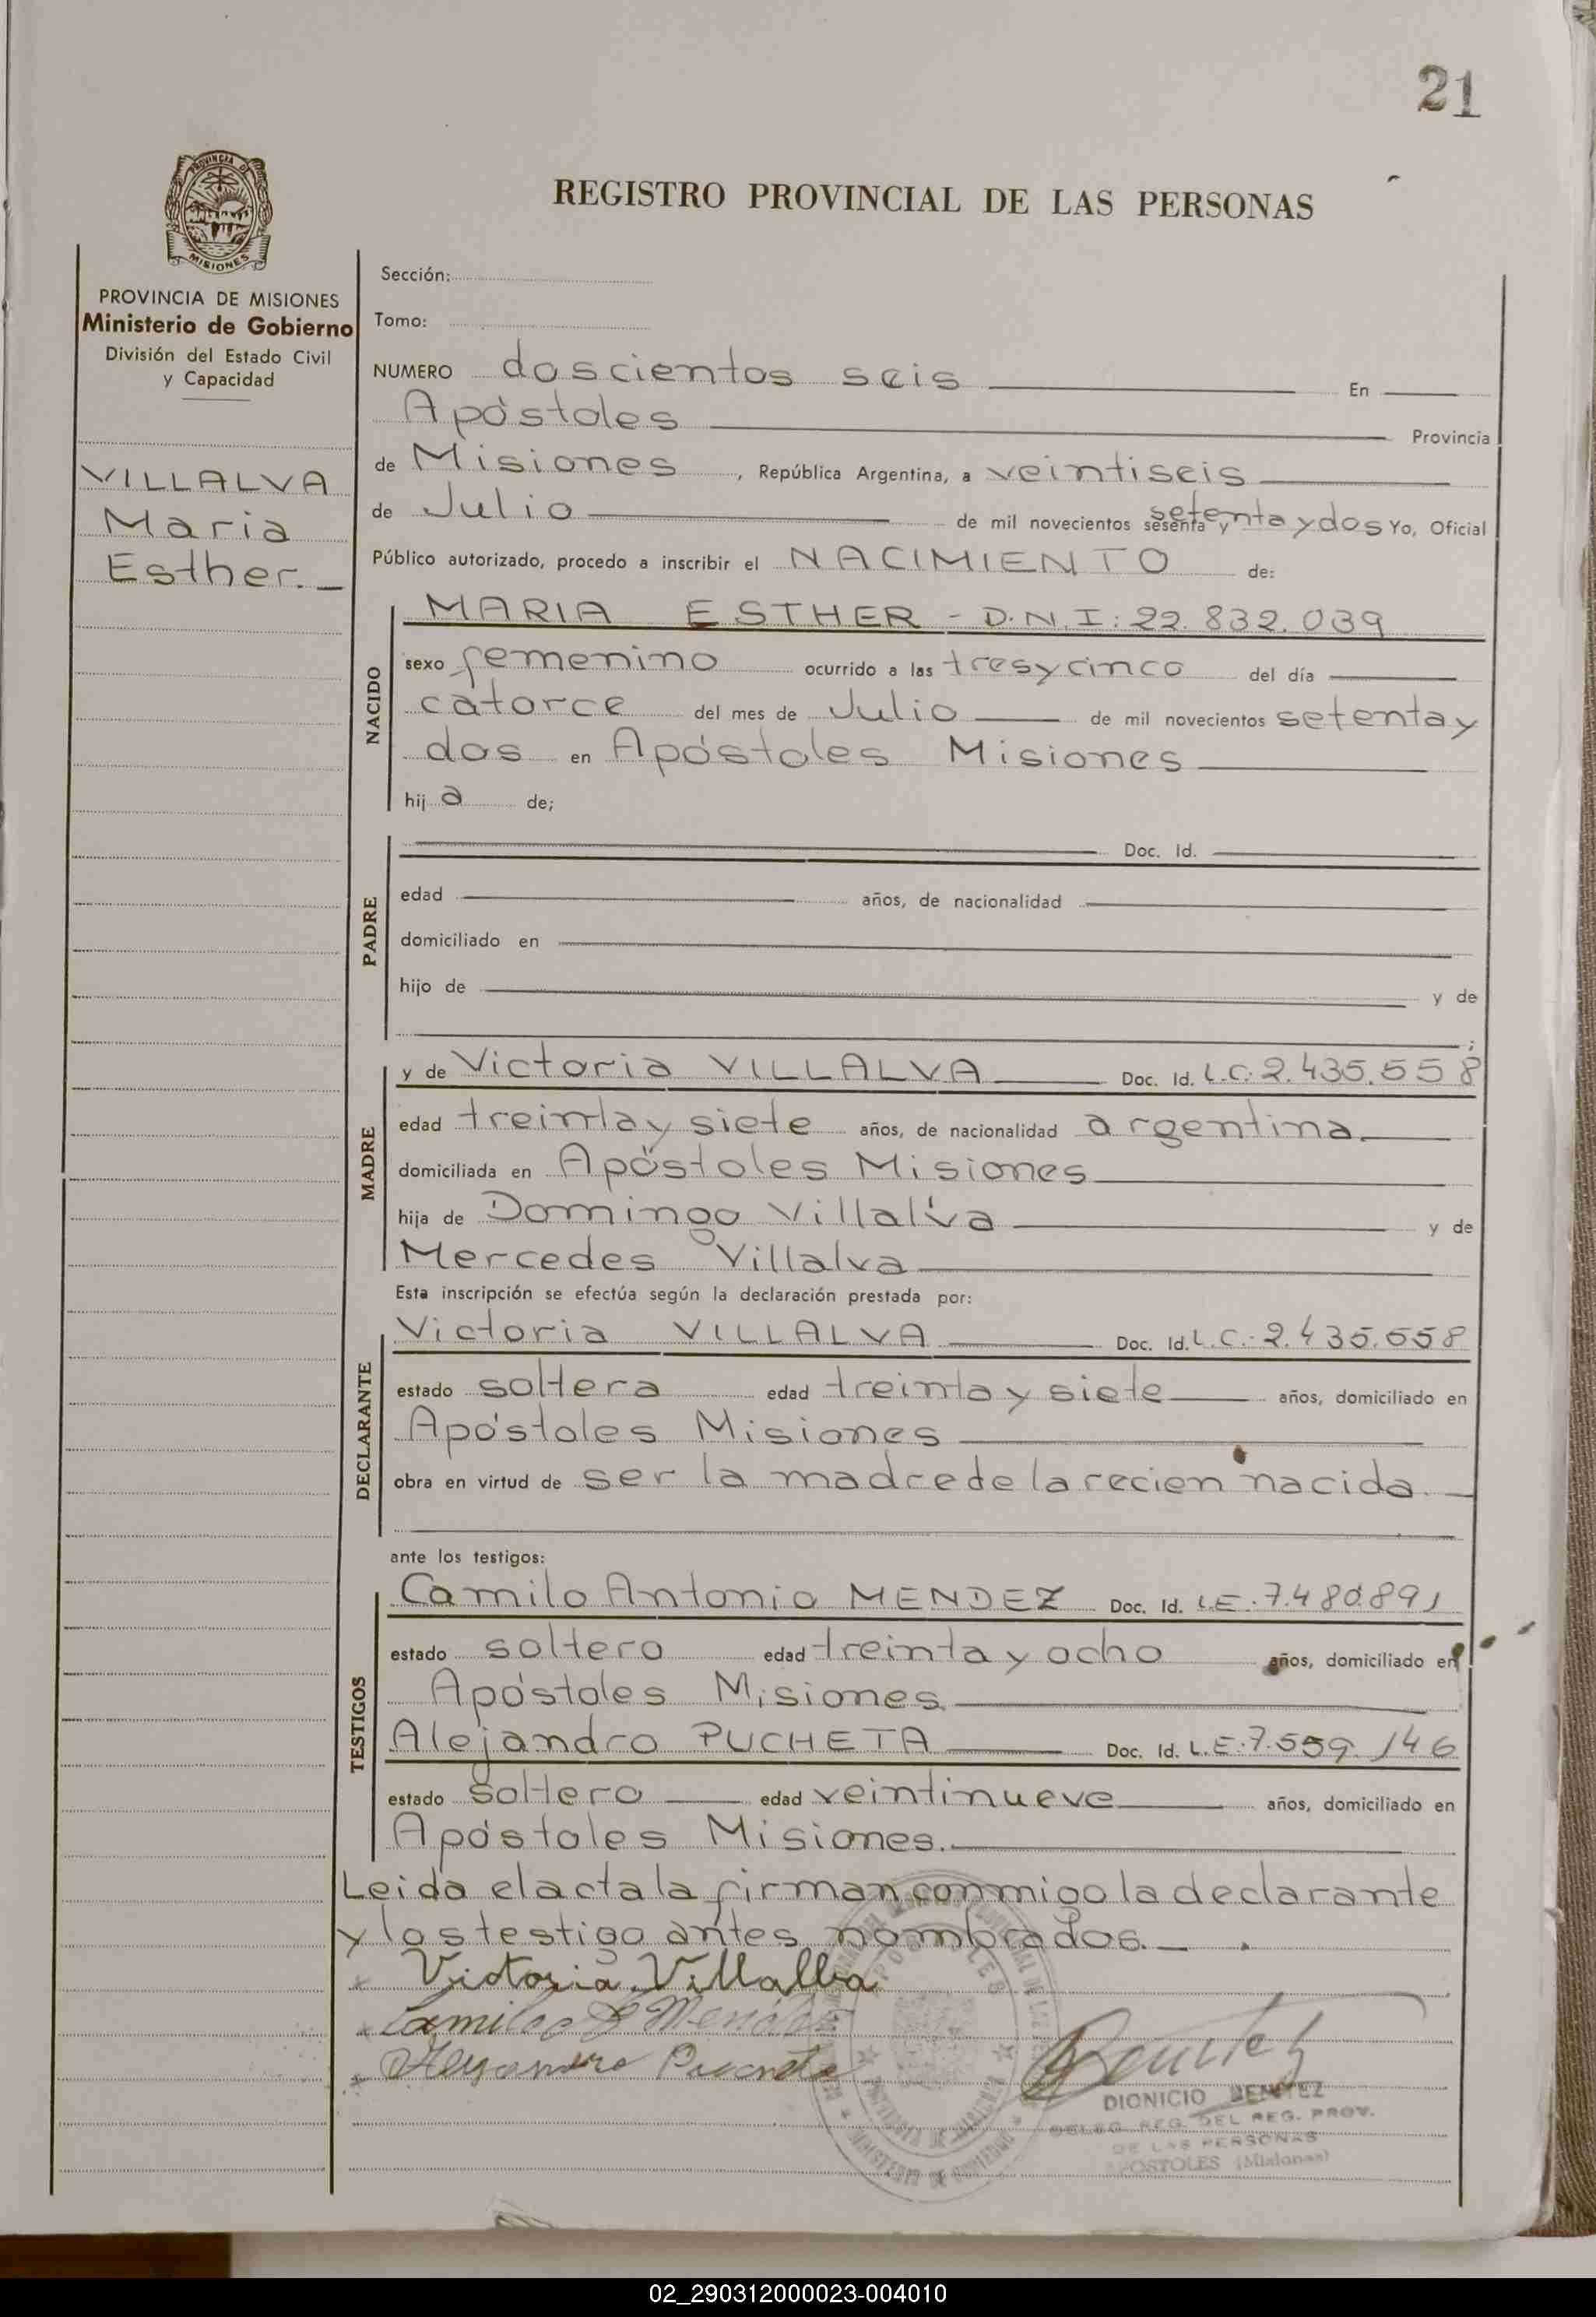 21
PROVINCIA DE
MISIONES
REGISTRO PROVINCIAL DE LAS PERSONAS
PROVINCIA DE MISIONES
Ministerio de Gobierno
División del Estado Civil
y Capacidad
VILLALVA
Maria
Esther.
Sección:
Tomo:
NUMERO doscientos seis En
Apóstoles Provincia
de Misiones, República Argentina, a veintiseis
de Julio de mil novecientos sesenta y setenta y dos Yo, Oficial
Público autorizado, procedo a inscribir el NACIMIENTO de:
NACIDO
MARIA ESTHER - D.N.I: 22.832.039
sexo femenino ocurrido a las tres y cinco del día
catorce del mes de Julio de mil novecientos setenta y
dos en Apóstoles Misiones
hij a de;
PADRE
Doc. Id.
edad años, de nacionalidad
domiciliado en
hijo de y de
;
MADRE
y de Victoria VILLALVA Doc. Id. L.C: 2.435.558
edad treinta y siete años, de nacionalidad argentina.
domiciliada en Apóstoles Misiones
hija de Domingo Villalva y de
Mercedes Villalva
Esta inscripción se efectúa según la declaración prestada por:
DECLARANTE
Victoria VILLALVA Doc. Id. L.C.: 2.435.558
estado soltera edad treinta y siete años, domiciliado en
Apóstoles Misiones
obra en virtud de ser la madre de la recien nacida.
ante los testigos:
TESTIGOS
Camilo Antonio MENDEZ Doc. Id. L.E. 7.480.891
estado soltero edad treinta y ocho años, domiciliado en
Apóstoles Misiones
Alejandro PUCHETA Doc. Id. L.E. 7.559.146
estado soltero edad veintinueve años, domiciliado en
Apóstoles Misiones.
Leida el acta la firman conmigo la declarante
y los testigo antes nombrados.
Victoria Villalba
Camilo A Mendez
Alejandro Pucheta
Benitez
DIONICIO BENITEZ
DELEG. REG. DEL REG. PROV.
DE LAS PERSONAS
APOSTOLES (Misiones)
APOSTOLES
PROVINCIA DE MISIONES
MINISTERIO DE GOBIERNO
02_290312000023-004010